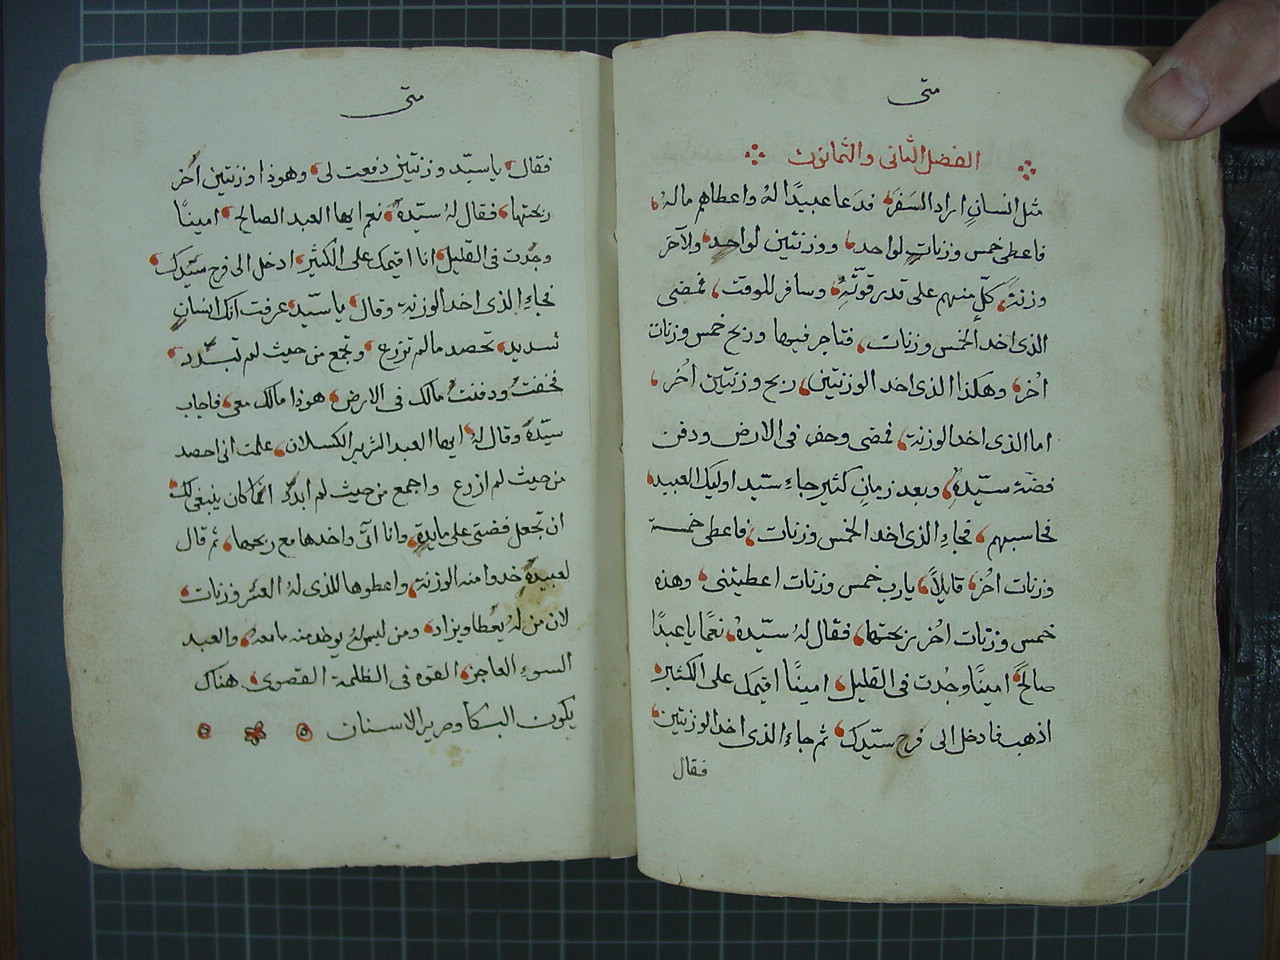 متى
الفصل الثانى والثمانون
مثل انسانٍ اراد السَفَر، فدَعا عبيدًا لهُ واعطاهم مالهُ،
فاعطى خمس وزناتٍ لواحد، ووزنتين لواحدٍ، ولآخرَ
وزنة، كلٍ منهم على قدر قوّتهِ، وسافر للوقت، فمضى
الذى اخد الخمس وزنات، فتاجر فيها وربح خمس وزنات
اُخر، وهكذا الذى اخد الوزنتين، ربح وزنتين اُخر،
اما الذى اخد الوزنة، فمضى وحفر فى الارض ودفن
فضّة سيّدهِ، وبعد زمانٍ كثير جاءِ سيّد اوليك العبيد،
فحاسبهم، فجاءِ الذى اخد الخمس وزنات، فاعطى خمسة
وزنات اُخر، قايلاً، يارب خمس وزنات اعطيتنى، وهذه
خمس وزنات اُخر ربحتها، فقال لهُ سيّدهُ، نعمًا ياعبدًا
صالحًا امينًا وجُدت فى القليل، امينًا اقيمك على الكثير،
اذهب فادخل الى فرح سيّدك، ثم جاءِ الذى اخد الوزنتين،
فقال
متى
فقال، ياسيّد وزنتين دفعت لى، وهوذا وزنتين اُخر
ربحتها، فقال لهُ سيّدهُ، نعم ايها العبد الصالح، امينًا
وجُدت فى القليل، انا اقيمك على الكثير، ادخل الى فرح سيّدك،
فجاءِ الذى اخد الوزنة، وقال، ياسيّد، عرفت انك انسانٍ
شديد، تحصد مالم تزرع، وتجمع من حيث لم تبدّد،
فخفتُ ودفنتُ مالك فى الارض، هوذا مالك معى، فاجاب
سيّدهُ وقال لهُ، ايها العبد الشرير الكسلان، علمت انى احصد
من حيث لم ازرع واجمع من حيث لم ابدّد انما كان ينبغى لك،
ان تجعل فضتى على مايدةٍ، وانا آتى واخدها مع ربحها، ثم قال
لعبيدهِ خدوا منه الوزنة، واعطوها للذى لهُ العشر وزنات،
لان من لهُ يُعطا ويزاد، ومن ليس لهُ يوخد منه مامعهُ، والعبد
السوءِ العاجز، القوه فى الظلمة القصوى، هناك
يكون البكا وصرير الاسنان